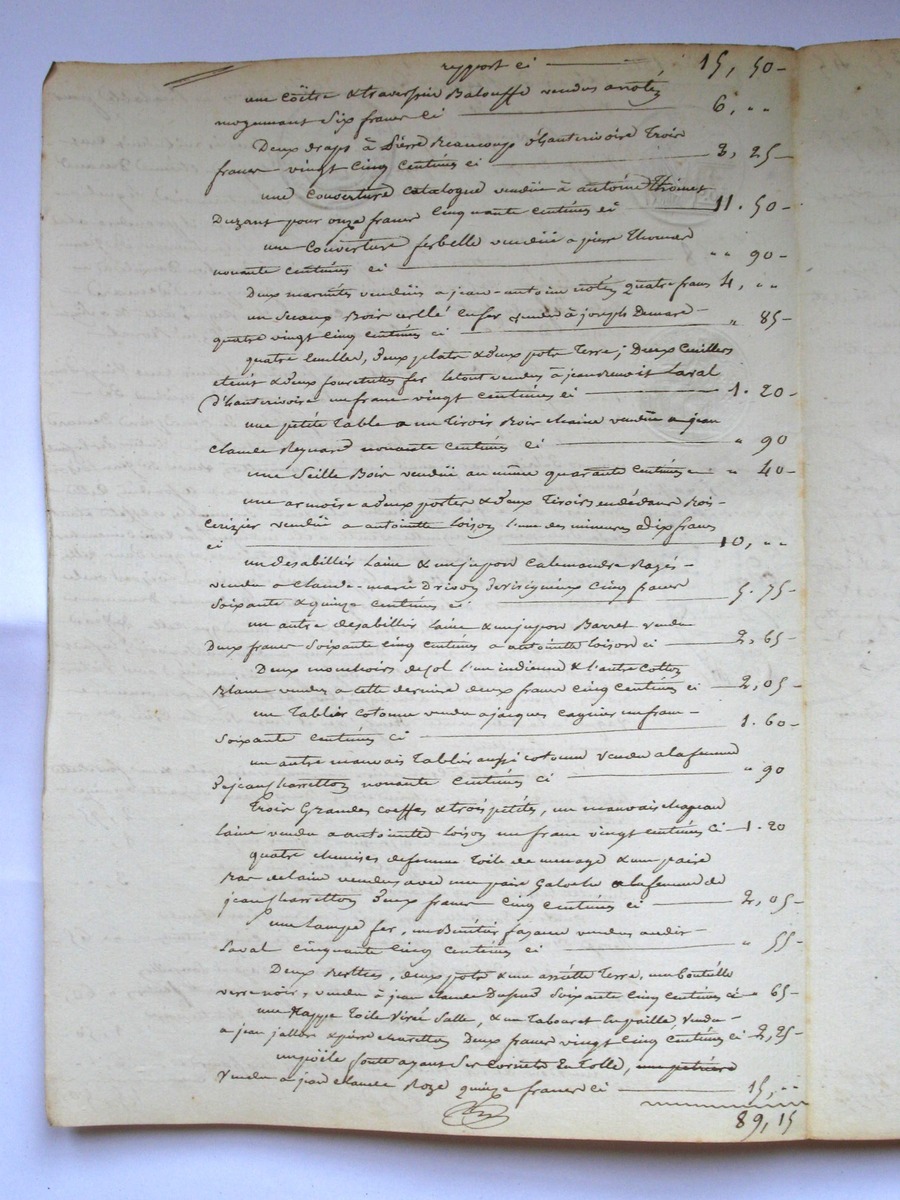 report ci 15, 50-
une coëtre & traversin Balouffe vendus a notéz
moyennant Six francs Ci 6, " "
Deux draps à Pierre Beaucoup d'hauterivoire Trois
francs vingt Cinq Centimes ci 3, 25-
une Couverture Catalogne vendüe à antoine Thoinet
Duzant pour onze francs Cinquante centimes ci 11. 50-
une Couverture ferbelle vendüe a pierre Thomas
nonante centimes ci " " 90-
Deux marmites vendües a jean-antoine notéz quatre francs 4, " "
un Seaux Bois cerclé En fer vendu à joseph Demare-
quatre vingt Cinq centimes ci " 85-
quatre , deux plats & deux pots Terre; Deux Cuillers
etain & deux fourchettes fer le tout vendus à jean benoit Laval
D'hauterivoire un franc vingt centimes ci 1. 20-
une petite Table a un Tiroir Bois chaine vendüe a jean
Claude Reynard nonante Centimes Ci " 90
une Seille Bois vendüe au même quarante Centimes " 40-
une armoire a deux portes & deux Tiroirs en dédans Bois-
Cerizier vendüe a antoinette Loison l'une des mineures Dix francs
ci 10, " "
un desabillier Laine & un jupon Calemandre Rayés-
vendu a Claude-marie Cinq francs
Soixante & quinze centimes ci 5. 75-
un autre desabillier Laine & un jupon Barret vendu
Deux francs Soixante Cinq centimes a antoinette Loison ci 2, 65-
Deux mouchoirs de Col l'un indienne & l'autre Cotton
Blanc vendus a cette derniere deux francs Cinq Centimes ci 2, 05-
un Tablier Cotonne vendu a jacques un franc-
Soixante Centimes Ci 1. 60-
un autre mauvais Tablier aussi cotonne vendu a la femme
De jean nonante Centimes Ci " 90
Trois Grandes Coeffes & trois petites, un mauvais chapeau
Laine vendu a antoinette Loison un franc vingt centimes Ci 1. 20
quatre chemises de femme Toile de menage & une paire
Bas de laine vendus avec une paire Galoche a la femme de
jean deux francs Cinq Centimes ci 2, 05-
une Lampe fer, un Bénitier fayance vendus audit-
Laval Cinquante Cinq Centimes ci " 55-
Deux , deux pots & une assiette Terre, un bouteille
verre noir, vendus à jean Claude Dupuis Soixante Cinq Centimes ci " 65-
une Nappe Toile Virée Salle, & un Tabouret En paille vendu-
a jean & pierre Deux francs vingt Cinq Centimes ci 2, 25-
un poële fonte ayant Ses Cornets En Tolle,
vendu a jean claude Roze quinze francs Ci 15, " "
89, 15